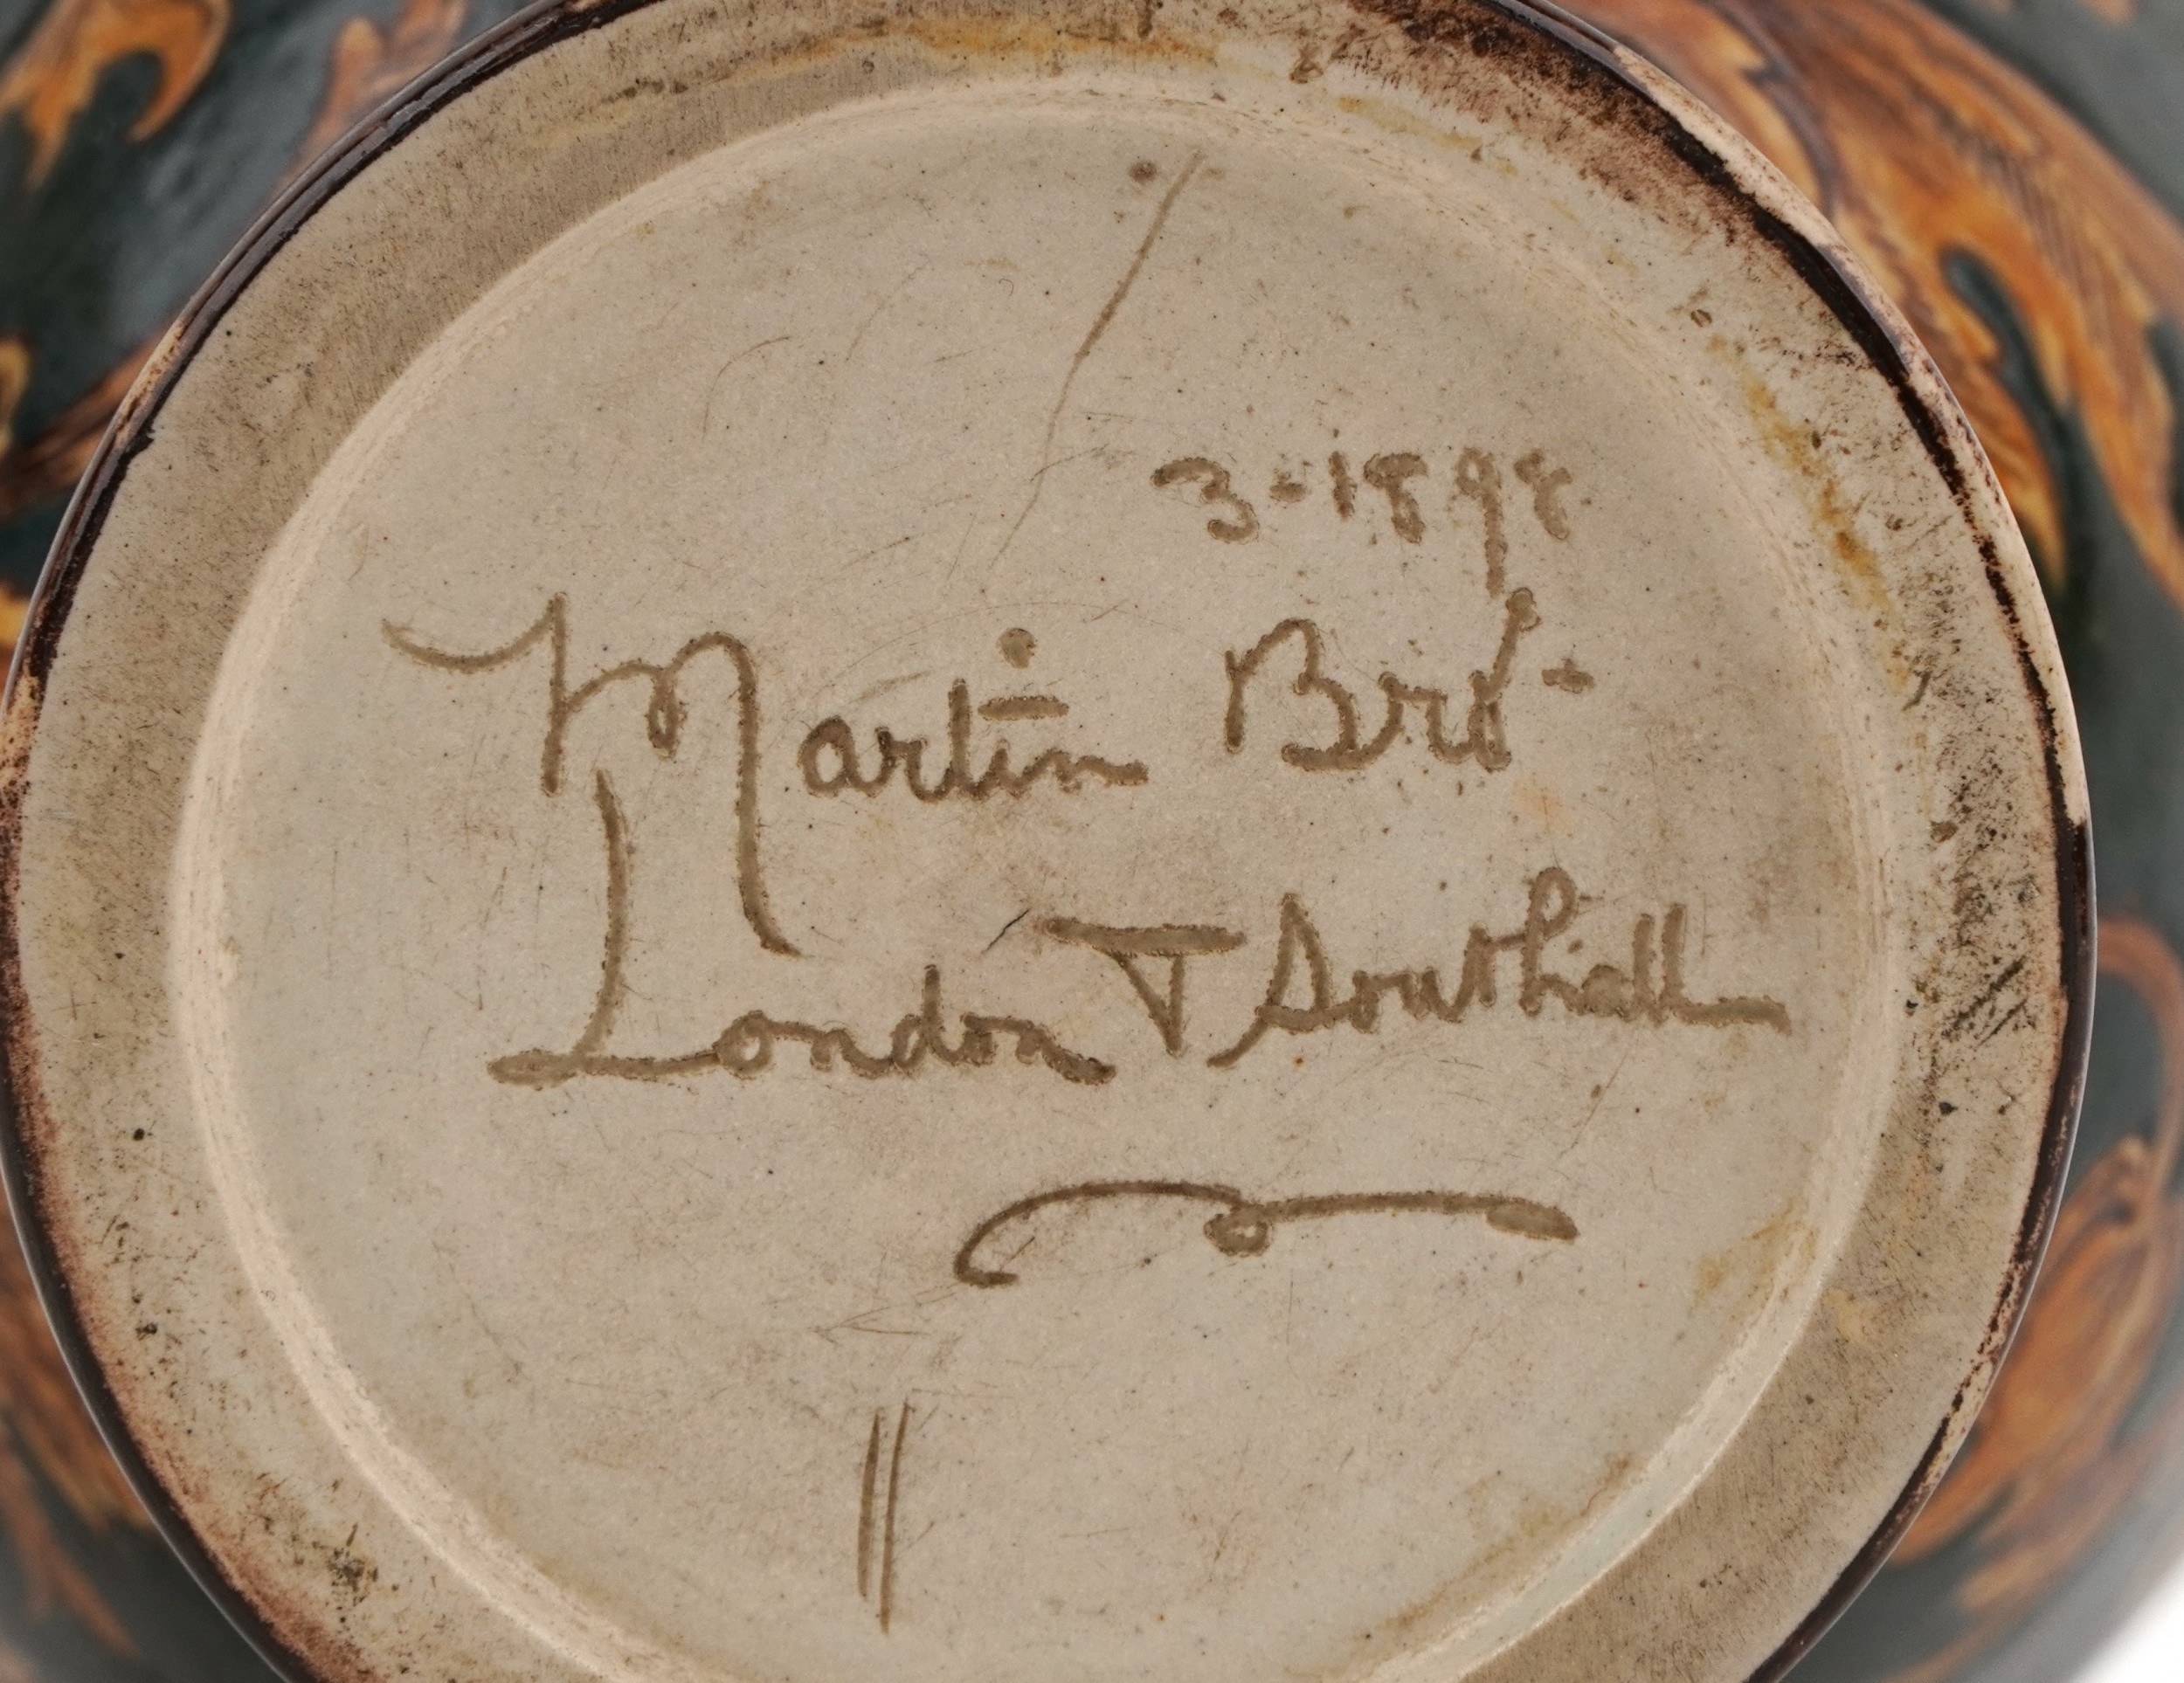 3-1898
Martin Bros
London & Southall